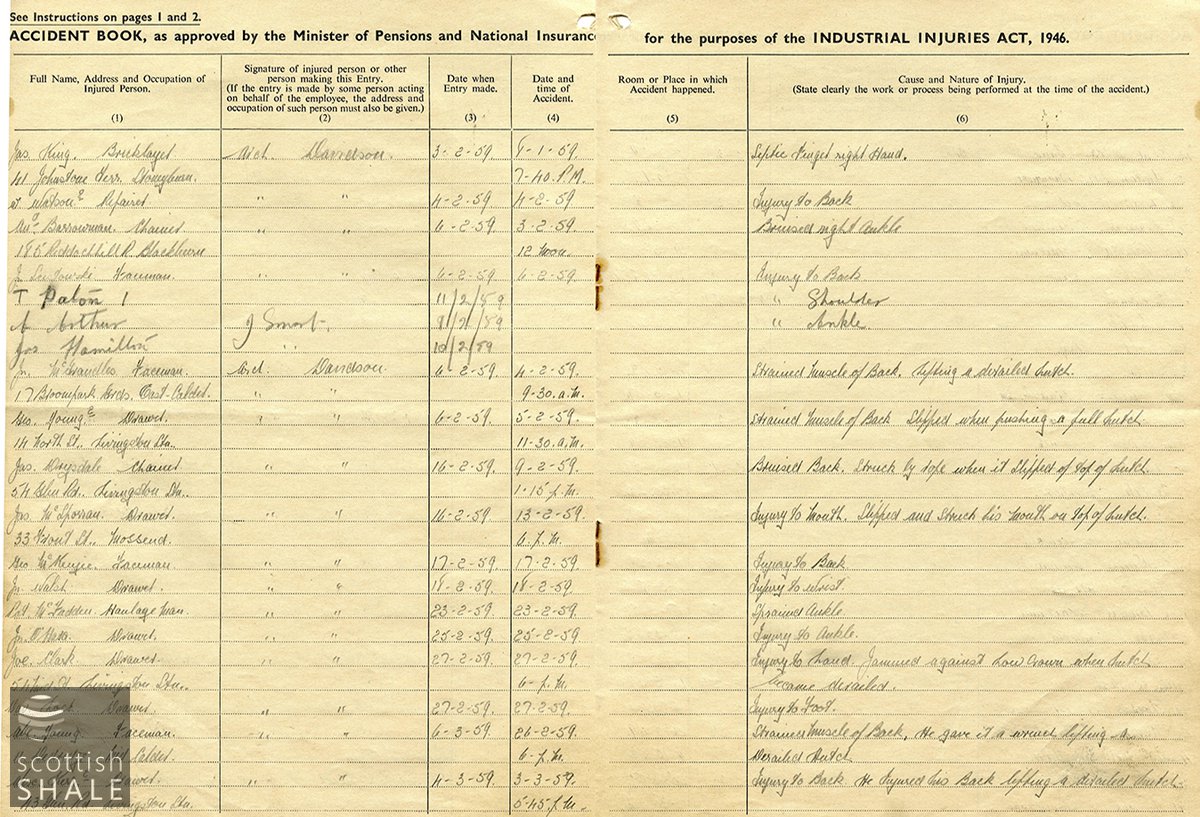 See Instructions on pages 1 and 2.
ACCIDENT BOOK, as approved by the Minister of Pensions and National Insurance for the purposes of the INDUSTRIAL INJURIES ACT, 1946.
Full Name, Address and Occupation of Injured Person. (1)
Signature of injured person or other person making this Entry. (If the entry is made by some person acting on behalf of the employee, the address and occupation of such person must also be given.) (2)
Date when Entry made. (3)
Date and time of Accident. (4)
Room or Place in which Accident happened. (5)
Cause and Nature of Injury. (State clearly the work or process being performed at the time of the accident.) (6)
Jas King. Bricklayer Arch. Davidson. 3-2-59. 8-1-59. Septic Finger right Hand.
41 Johnstone Terr. Stoneyburn. 7-40. P.M.
Watson Repairer " " 4-2-59 4-2-59 Injury to Back
Barrowman. Chainer " " 6-2-59 3-2-59. Bruised right Ankle
Riddochhill R. Blackburn 12 Noon.
Faceman. " " 6-2-59 6-2-59. Injury to Back
T Paton 1 11/2/59 " Shoulder
A Arthur J Smart. 9/2/59 " Ankle.
Jas Hamilton " 10/2/59
Jn. Faceman. Arch. Davidson 6-2-59. 4-2-59. Strained Muscle of Back. lifting a derailed hutch.
17 Broompark Cres. East-Calder. " " 9-30. a.m.
Geo. Young Drawer. " " 6-2-59. 5-2-59. Strained Muscle of Back Slipped when pushing a full hutch
14 North St., Livingston Stn. 11-30. a.m.
Jas. Drysdale Chainer " " 16-2-59. 9-2-59. Bruised Back. Struck by rope when it slipped of top of hutch
54 Glen Rd., Livingston Stn. 1-15 p.m.
Jas. McSporran. Drawer. " " 16-2-59. 13-2-59. Injury to Mouth. Slipped and Struck his mouth on top of hutch.
33 Front St., Mossend. 6. p.m.
Geo McKenzie. Faceman. " " 17-2-59. 17-2-59. Injury to Back
Jn. Walsh Drawer. " " 18-2-59. 18-2-59. Injury to wrist.
Pat. McFadden. Haulage man. " " 23-2-59. 23-2-59. Sprained Ankle.
Jn. O'Hara. Drawer. " " 25-2-59. 25-2-59. Injury to Ankle.
Joe. Clark Drawer. " " 27-2-59. 27-2-59. Injury to hand. Jammed against Low Crown when hutch
Livingston Stn. 6- p.m. became derailed.
Drawer " " 27-2-59. 27-2-59. Injury to Foot.
Young Faceman. " " 6-3-59. 26-2-59. Strained Muscle of Back, He gave it a wrench lifting a
Mid Calder. 6- p.m. Derailed Hutch
Drawer. " " 4-3-59 3-3-59. Injury to Back. He Injured his Back lifting a derailed hutch.
Livingston Stn. 5-45. p.m.
scottish
SHALE